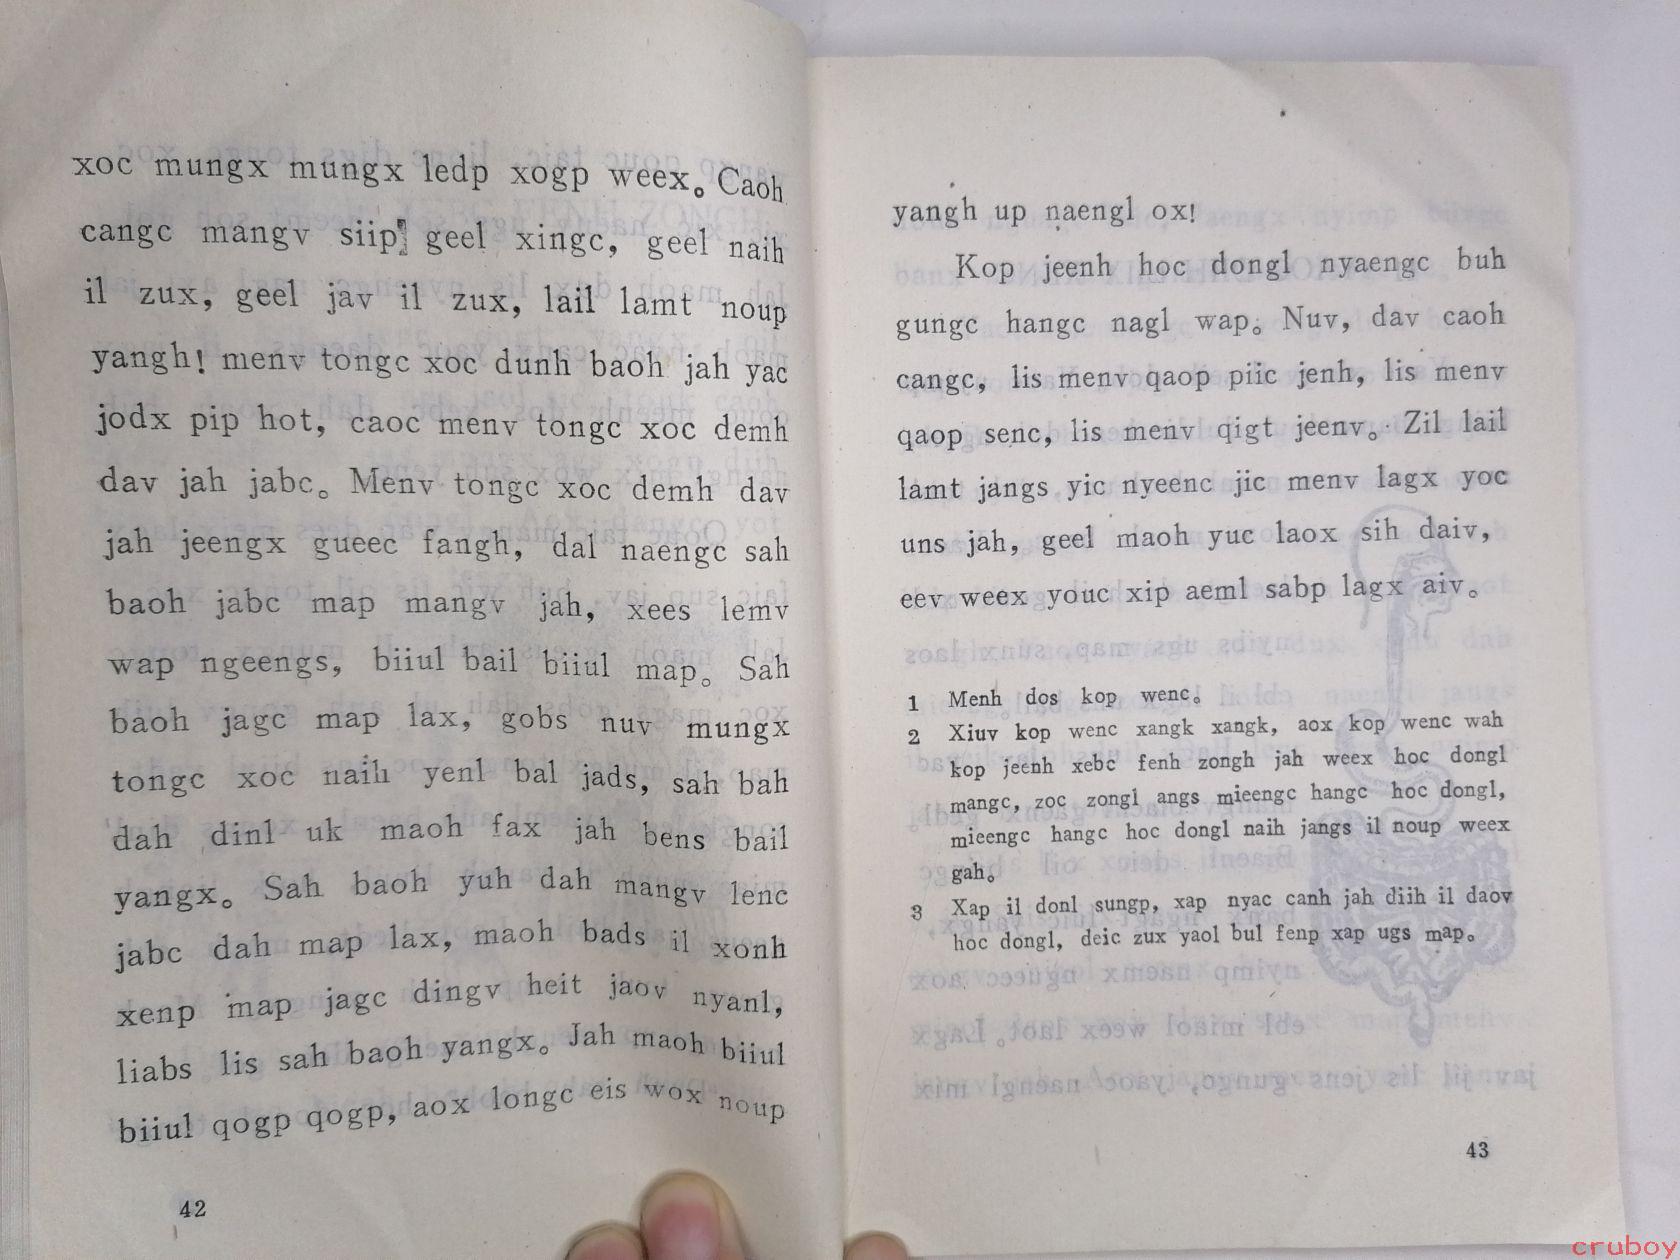 xoc mungx mungx ledp xogp weex。Caoh
cangc mangv siip, geel xingc, geel naih
il zux, geel jav il zux, lail lamt noup
yangh! menv tongc xoc dunh baoh jah yac
jodx pip hot, caoc menv tongc xoc demh
dav jah jabc。Menv tongc xoc demh dav
jah jeengx gueec fangh, dal naengc sah
baoh jabc map mangv jah, xees lemv
wap ngeengs, biiul bail biiul map。Sah
baoh jagc map lax, gobs nuv mungx
tongc xoc naih yenl bal jads, sah bah
dah dinl uk maoh fax jah bens bail
yangx。Sah baoh yuh dah mangv lenc
jabc dah map lax, maoh bads il xonh
xenp map jagc dingv heit jaov nyanl,
liabs lis sah baoh yangx。Jah maoh biiul
biiul qogp qogp, aox longc eis wox noup
42
yangh up naengl ox!
Kop jeenh hoc dongl nyaengc buh
gungc hangc nagl wap。Nuv, dav caoh
cangc, lis menv qaop piic jenh, lis menv
qaop senc, lis menv qigt jeenv。Zil lail
lamt jangs yic nyeenc jic menv lagx yoc
uns jah, geel maoh yuc laox sih daiv,
eev weex youc xip aeml sabp lagx aiv。
1 Menh dos kop wenc。
2 Xiuv kop wenc xangk xangk, aox kop wenc wah
kop jeenh xebc fenh zongh jah weex hoc dongl
mangc, zoc zongl angs mieengc hangc hoc dongl,
mieengc hangc hoc dongl naih jangs il noup weex
gah。
3 Xap il donl sungp, xap nyac canh jah diih il daov
hoc dongl, deic zux yaol bul fenp xap ugs map。
43
cruboy